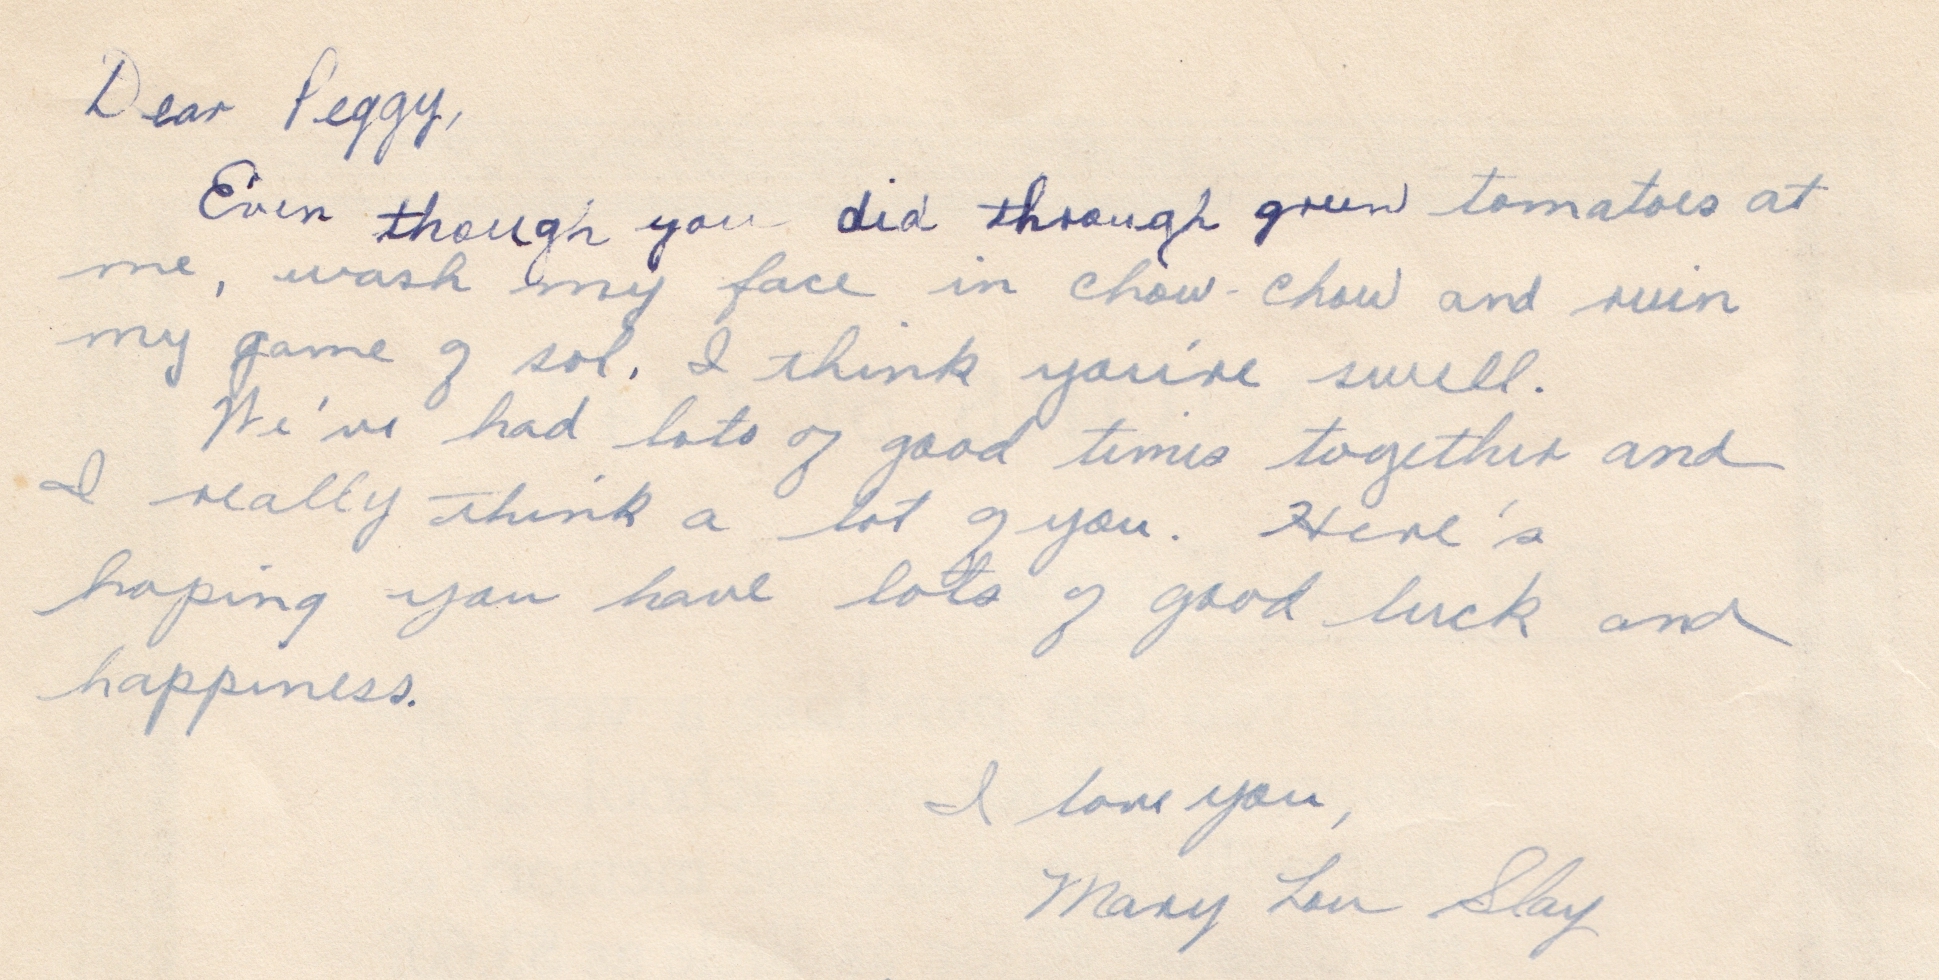 Dear Peggy,
Even though you did through green tomatoes at
me, wash my face in chow-chow and ruin
my game of sol, I think you're swell.
We've had lots of good times together and
I really think a lot of you. Here's
hoping you have lots of good luck and
happiness.
I love you,
Mary Lou Slay